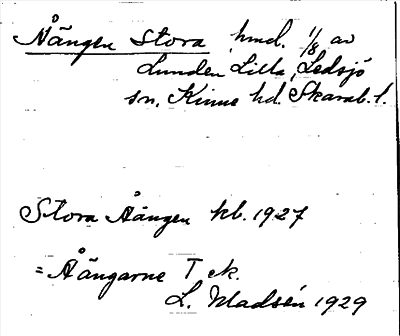 Åängen Stora hmd. 1/8 av
Lunden Lilla, Ledsjö
sn. Kinne hd. Skarab. l.
Stora Åängen kb. 1927
= Åängarne T ek.
L. Madsén 1929